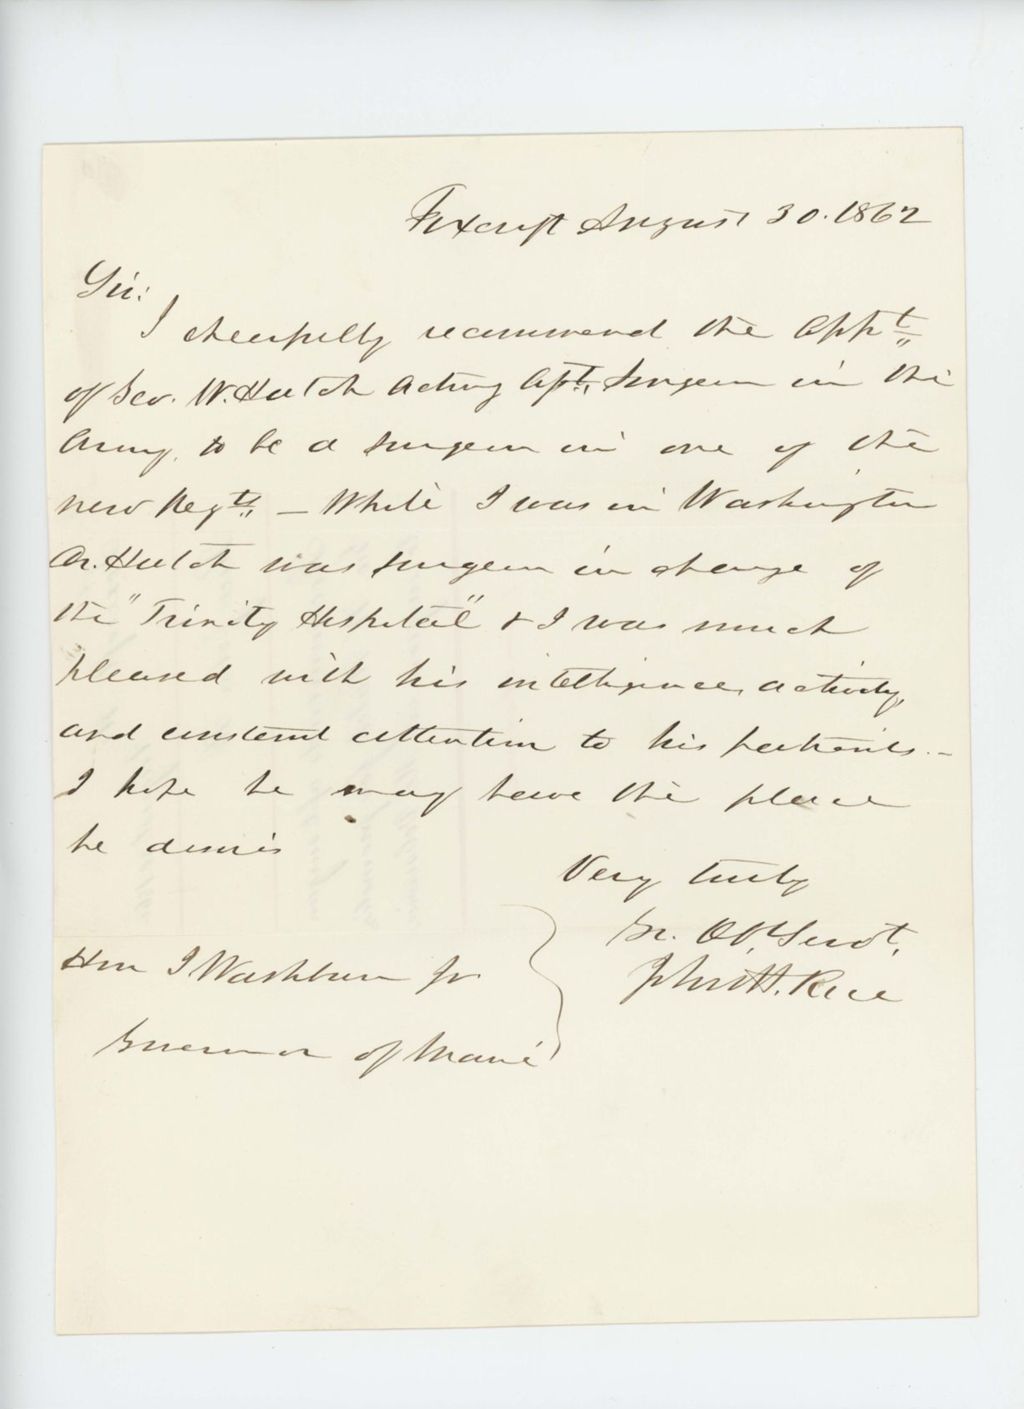 Foxcroft August 30. 1862
Sir:
I cheerfully recommend the appt
of Geo. W. Hatch Acting Asst. Surgeon in the
Army, to be a surgeon in one of the
new Regts. — While I was in Washington
Dr. Hatch was surgeon in charge of
the "Trinity Hospital" & I was much
pleased with his intelligence, activity,
and constant attention to his patients. —
I hope he may have the place
he desires
Very truly
Yr. Obt. Servt,
John H. Rice
Hon I Washburn Jr
Governor of Maine